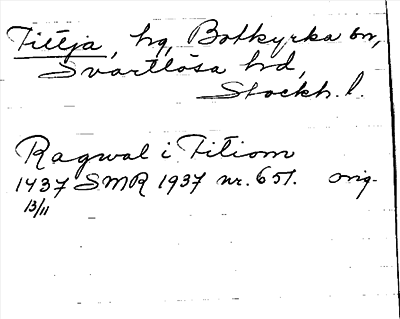 Tittja, hg, Botkyrka sn,
Svartlösa hd,
Stockh. l.
Ragwal i Titiom
1437 SMR 1937 nr. 651. orig.
13/11